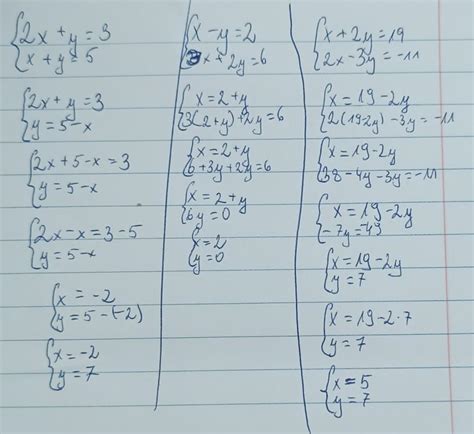 2x + y = 3
x + y = 5
2x + y = 3
y = 5 - x
2x + 5 - x = 3
y = 5 - x
2x - x = 3 - 5
y = 5 - x
x = -2
y = 5 - (-2)
x = -2
y = 7
x - y = 2
3x + 2y = 6
x = 2 + y
3(2 + y) + 2y = 6
x = 2 + y
6 + 3y + 2y = 6
x = 2 + y
6y = 0
x = 2
y = 0
x + 2y = 19
2x - 3y = -11
x = 19 - 2y
2(19 - 2y) - 3y = -11
x = 19 - 2y
38 - 4y - 3y = -11
x = 19 - 2y
-7y = -49
x = 19 - 2y
y = 7
x = 19 - 2 · 7
y = 7
x = 5
y = 7